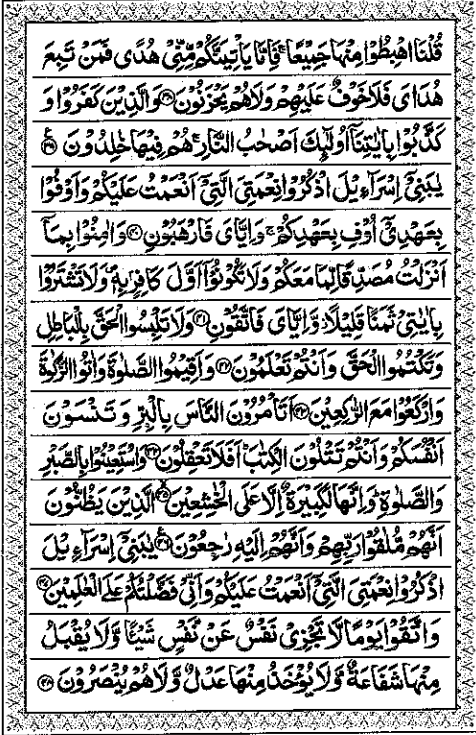 قُلْنَا اهْبِطُوْا مِنْهَا جَمِيْعًا ۚ فَاِمَّا يَاْتِيَنَّكُمْ مِّنِّيْ هُدًى فَمَنْ تَبِعَ
هُدَايَ فَلَا خَوْفٌ عَلَيْهِمْ وَلَا هُمْ يَحْزَنُوْنَ ۝۳۸ وَالَّذِيْنَ كَفَرُوْا وَ
كَذَّبُوْا بِاٰيٰتِنَاۤ اُولٰٓئِكَ اَصْحٰبُ النَّارِ ۚ هُمْ فِيْهَا خٰلِدُوْنَ ۝۳۹
يٰبَنِيْۤ اِسْرَآءِيْلَ اذْكُرُوْا نِعْمَتِيَ الَّتِيْۤ اَنْعَمْتُ عَلَيْكُمْ وَاَوْفُوْا
بِعَهْدِيْۤ اُوْفِ بِعَهْدِكُمْ ۚ وَاِيَّايَ فَارْهَبُوْنِ ۝۴۰ وَاٰمِنُوْا بِمَاۤ
اَنْزَلْتُ مُصَدِّقًا لِّمَا مَعَكُمْ وَلَا تَكُوْنُوْۤا اَوَّلَ كَافِرٍۭ بِهٖ ۪ وَلَا تَشْتَرُوْا
بِاٰيٰتِيْ ثَمَنًا قَلِيْلًا ۫ وَّاِيَّايَ فَاتَّقُوْنِ ۝۴۱ وَلَا تَلْبِسُوا الْحَقَّ بِالْبَاطِلِ
وَتَكْتُمُوا الْحَقَّ وَاَنْتُمْ تَعْلَمُوْنَ ۝۴۲ وَاَقِيْمُوا الصَّلٰوةَ وَاٰتُوا الزَّكٰوةَ
وَارْكَعُوْا مَعَ الرّٰكِعِيْنَ ۝۴۳ اَتَاْمُرُوْنَ النَّاسَ بِالْبِرِّ وَتَنْسَوْنَ
اَنْفُسَكُمْ وَاَنْتُمْ تَتْلُوْنَ الْكِتٰبَ ؕ اَفَلَا تَعْقِلُوْنَ ۝۴۴ وَاسْتَعِيْنُوْا بِالصَّبْرِ
وَالصَّلٰوةِ ؕ وَاِنَّهَا لَكَبِيْرَةٌ اِلَّا عَلَى الْخٰشِعِيْنَ ۝۴۵ الَّذِيْنَ يَظُنُّوْنَ
اَنَّهُمْ مُّلٰقُوْا رَبِّهِمْ وَاَنَّهُمْ اِلَيْهِ رٰجِعُوْنَ ۝۴۶ يٰبَنِيْۤ اِسْرَآءِيْلَ
اذْكُرُوْا نِعْمَتِيَ الَّتِيْۤ اَنْعَمْتُ عَلَيْكُمْ وَاَنِّيْ فَضَّلْتُكُمْ عَلَى الْعٰلَمِيْنَ ۝۴۷
وَاتَّقُوْا يَوْمًا لَّا تَجْزِيْ نَفْسٌ عَنْ نَّفْسٍ شَيْـًٔا وَّلَا يُقْبَلُ
مِنْهَا شَفَاعَةٌ وَّلَا يُؤْخَذُ مِنْهَا عَدْلٌ وَّلَا هُمْ يُنْصَرُوْنَ ۝۴۸